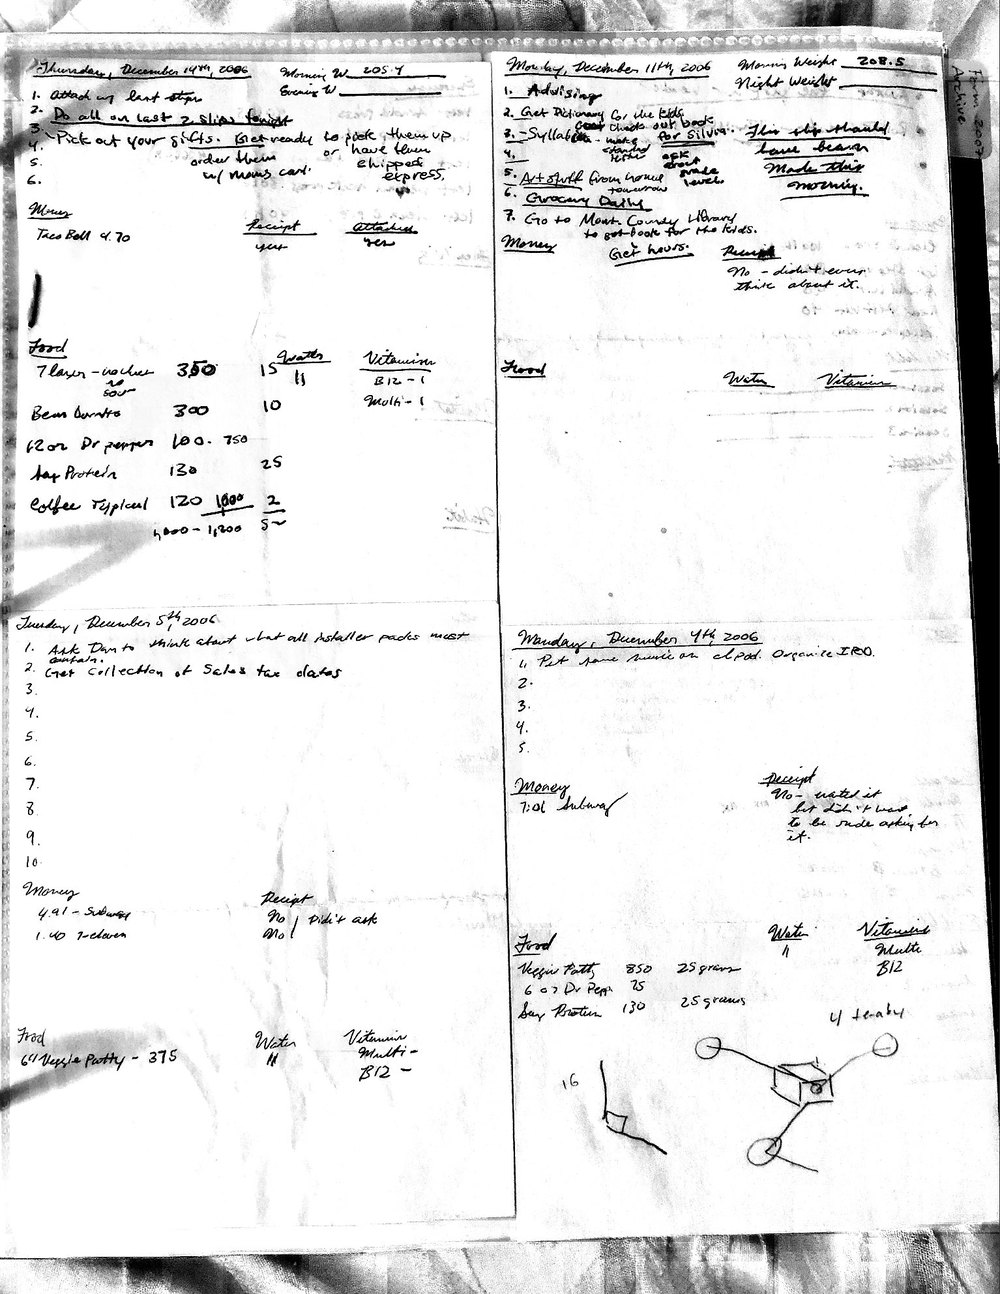 Thursday, December 14th, 2006
Morning W 205.4
Evening W
1. Attach w/ last slips
2. Do all on last 2 slips tonight
3. Pick out your gifts. Get ready to pick them up
4. order them or have them
5. w/ moms card. shipped
6. express.
Money
Receipt Attached
Taco Bell 4.70
yes yes
Food
Water Vitamins
7 layer - no 350 15 11 B12 - 1
no sour
Multi - 1
Bean Burrito 300 10
62 oz Dr pepper 100. 750
Soy Protein 130 25
Coffee Typical 120 1000 2
1,000 - 1,200 5~
Monday, December 11th, 2006
Morning Weight 208.5
Night Weight
1. Advising
2. Get Dictionary for the kids
check out book
3. - Syllabus - for Silvia.
4. ask about grade level.
This slip should have been made this morning.
5. Art stuff from
tomorrow
6. Grocery Daily
7. Go to Mont. County Library
to get book for the kids.
Get hours.
Money
Receipt
No - didn't even
think about it.
Food
Water Vitamins
Tuesday, December 5th, 2006
1. Ask Dan to think about what all installer packs must
contain.
2. Get Collection of Sales tax dates
3.
4.
5.
6.
7.
8
9.
10.
Money
Receipt
4.91 - Subway No | Didn't ask
1.40 7-eleven No |
Food
Water Vitamins
6" Veggie Patty - 375 11 Multi -
B12 -
Monday, December 4th, 2006
1. Put some music on Ipod. Organize IPOD.
2.
3.
4.
5.
Money
Receipt
7:06 Subway
No - wanted it
but didn't want
to be rude asking for
it.
Food
Water Vitamins
Veggie Patty 850 25 grams 11 Multi
B12
6 oz Dr Pepp 75
Soy Protein 130 25 grams
16
Form 2007
Archive